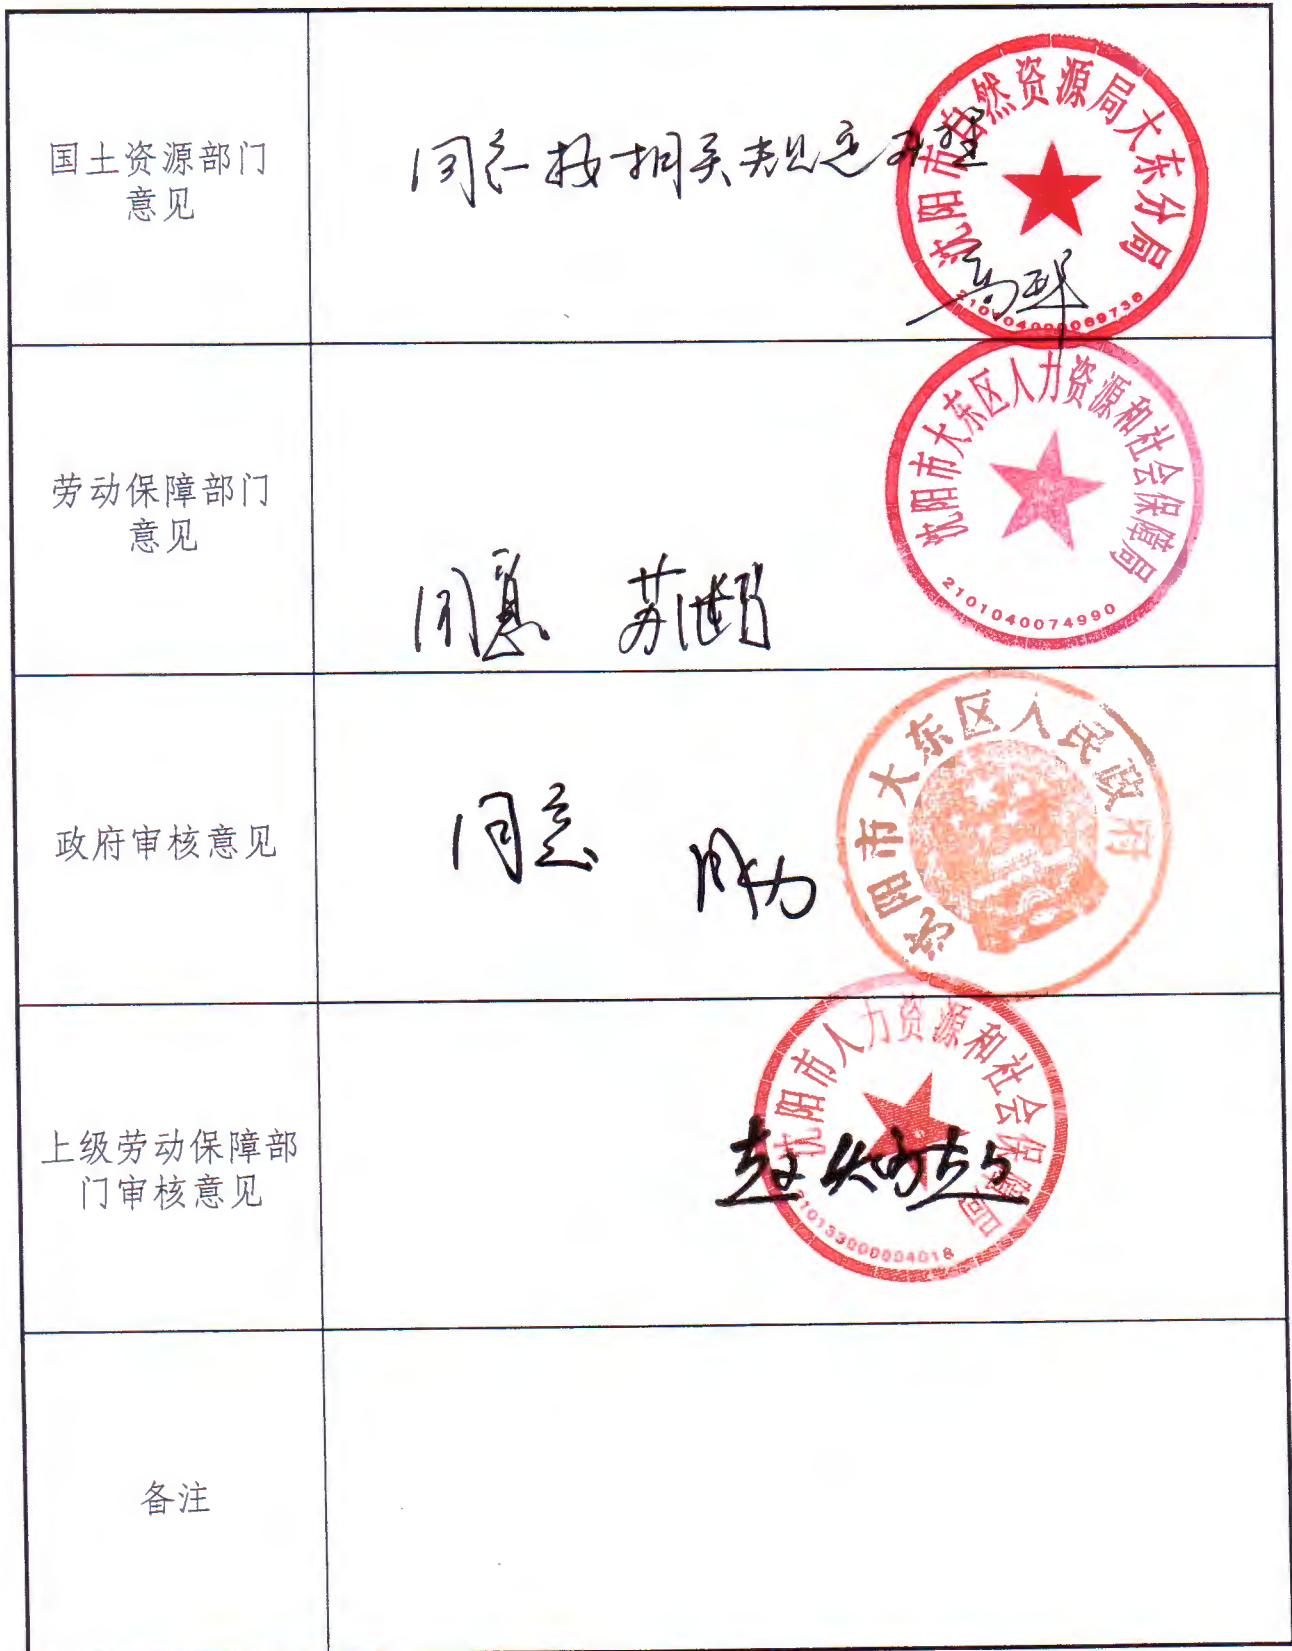 国土资源部门
意见
同意按相关规定办理
沈阳市自然资源局大东分局
劳动保障部门
意见
同意
沈阳市大东区人力资源和社会保障局
2101040074990
政府审核意见
同意
沈阳市大东区人民政府
上级劳动保障部
门审核意见
沈阳市人力资源和社会保障局
210133000004018
备注